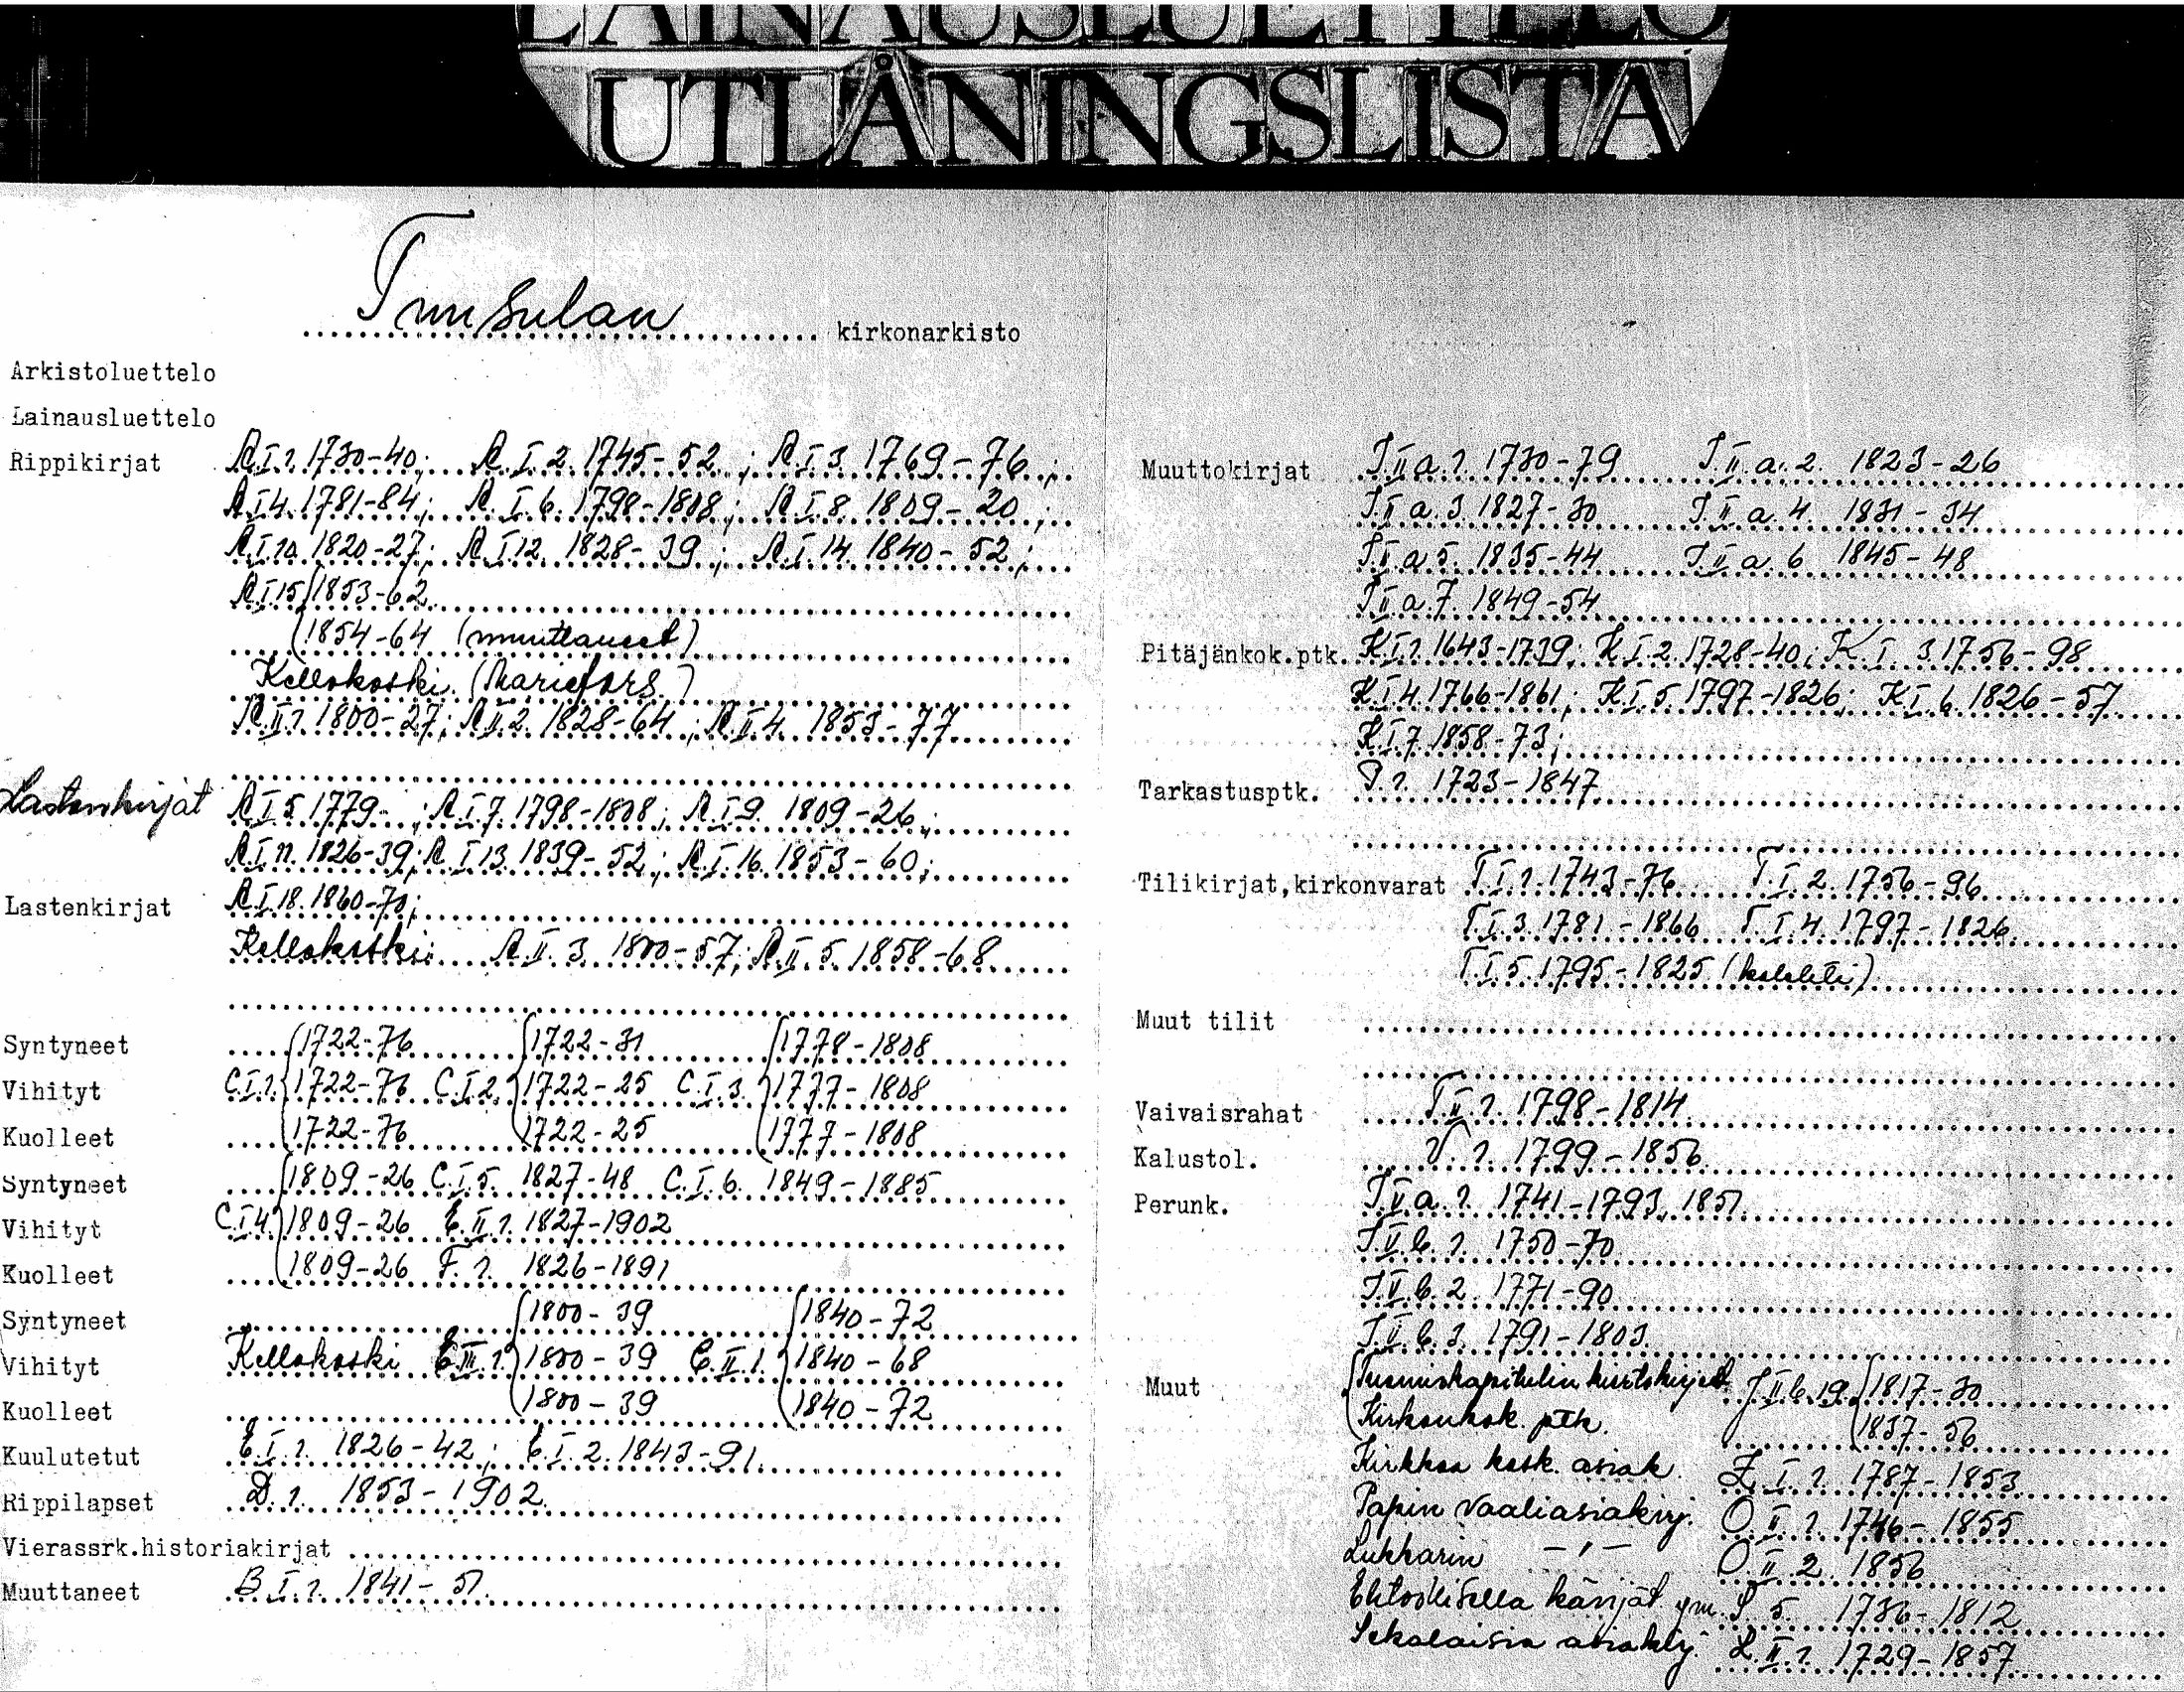 LAINAUSLUETTELO
UTLÅNINGSLISTA
Tuusulan kirkonarkisto
Arkistoluettelo
Lainausluettelo
Rippikirjat A.I.1. 1730-40; A.I.2. 1745-52; A.I.3. 1769-76;
A.I.4. 1781-84; A.I.6. 1798-1808; A.I.8. 1809-20;
A.I.10. 1820-27; A.I.12. 1828-39; A.I.14. 1840-52;
A.I.15 1853-62
1854-64 (muuttaneet)
Kellokoski (Mariefors)
A.II.1. 1800-27; A.II.2. 1828-64; A.II.4. 1853-77
Lastenkirjat A.I.5. 1779- ; A.I.7. 1798-1808; A.I.9. 1809-26;
A.I.11. 1826-39; A.I.13. 1839-52; A.I.16. 1853-60;
Lastenkirjat A.I.18. 1860-70;
Kellokoski: A.II.3. 1800-57; A.II.5. 1858-68
Syntyneet 1722-76 1722-31 1778-1808
Vihityt C.I.1. 1722-76 C.I.2. 1722-25 C.I.3. 1777-1808
Kuolleet 1722-76 1722-25 1777-1808
Syntyneet 1809-26 C.I.5. 1827-48 C.I.6. 1849-1885
Vihityt C.I.4. 1809-26 E.II.1. 1827-1902
Kuolleet 1809-26 F.1. 1826-1891
Syntyneet 1800-39 1840-72
Vihityt Kellokoski III.1. 1800-39 C.II.1. 1840-68
Kuolleet 1800-39 1840-72
Kuulutetut E.I.1. 1826-42; E.I.2. 1843-91
Rippilapset D.1. 1853-1902
Vierassrk.historiakirjat
Muuttaneet B.I.1. 1841-51
Muuttokirjat J.II.a.1. 1730-79 J.II.a.2. 1823-26
J.II.a.3. 1827-30 J.II.a.4. 1831-34
J.II.a.5. 1835-44 J.II.a.6 1845-48
J.II.a.7. 1849-54
Pitäjänkok.ptk. K.I.1. 1643-1739; K.I.2. 1728-40; K.I.3. 1756-98
K.I.4. 1766-1861; K.I.5. 1797-1826; K.I.6. 1826-57
K.I.7. 1858-73;
Tarkastusptk. P.1. 1723-1847
Tilikirjat,kirkonvarat T.I.1. 1743-76 T.I.2. 1756-96
T.I.3. 1781-1866 T.I.4. 1797-1826
T.I.5. 1795-1825 (kolehti)
Muut tilit
Vaivaisrahat T.II.1. 1798-1814
Kalustol. V.1. 1799-1856
Perunk. J.V.a.1. 1741-1793, 1851
J.V.b.1. 1750-70
J.V.b.2. 1771-90
J.V.b.3. 1791-1803
Muut Tuomiokapitulin kiertokirjeet J.II.b.19. 1817-30
Kirkonkok. ptk. 1837-56
Kirkkoa kosk. asiak. I.1. 1787-1853
Papin vaaliasiakirj. O.II.1. 1746-1855
Lukkarin -,- O.II.2. 1856
Ehtoollisella kävijät ym. S 5. 1786-1812
Sekalaisia asiakirj. II.1. 1729-1857